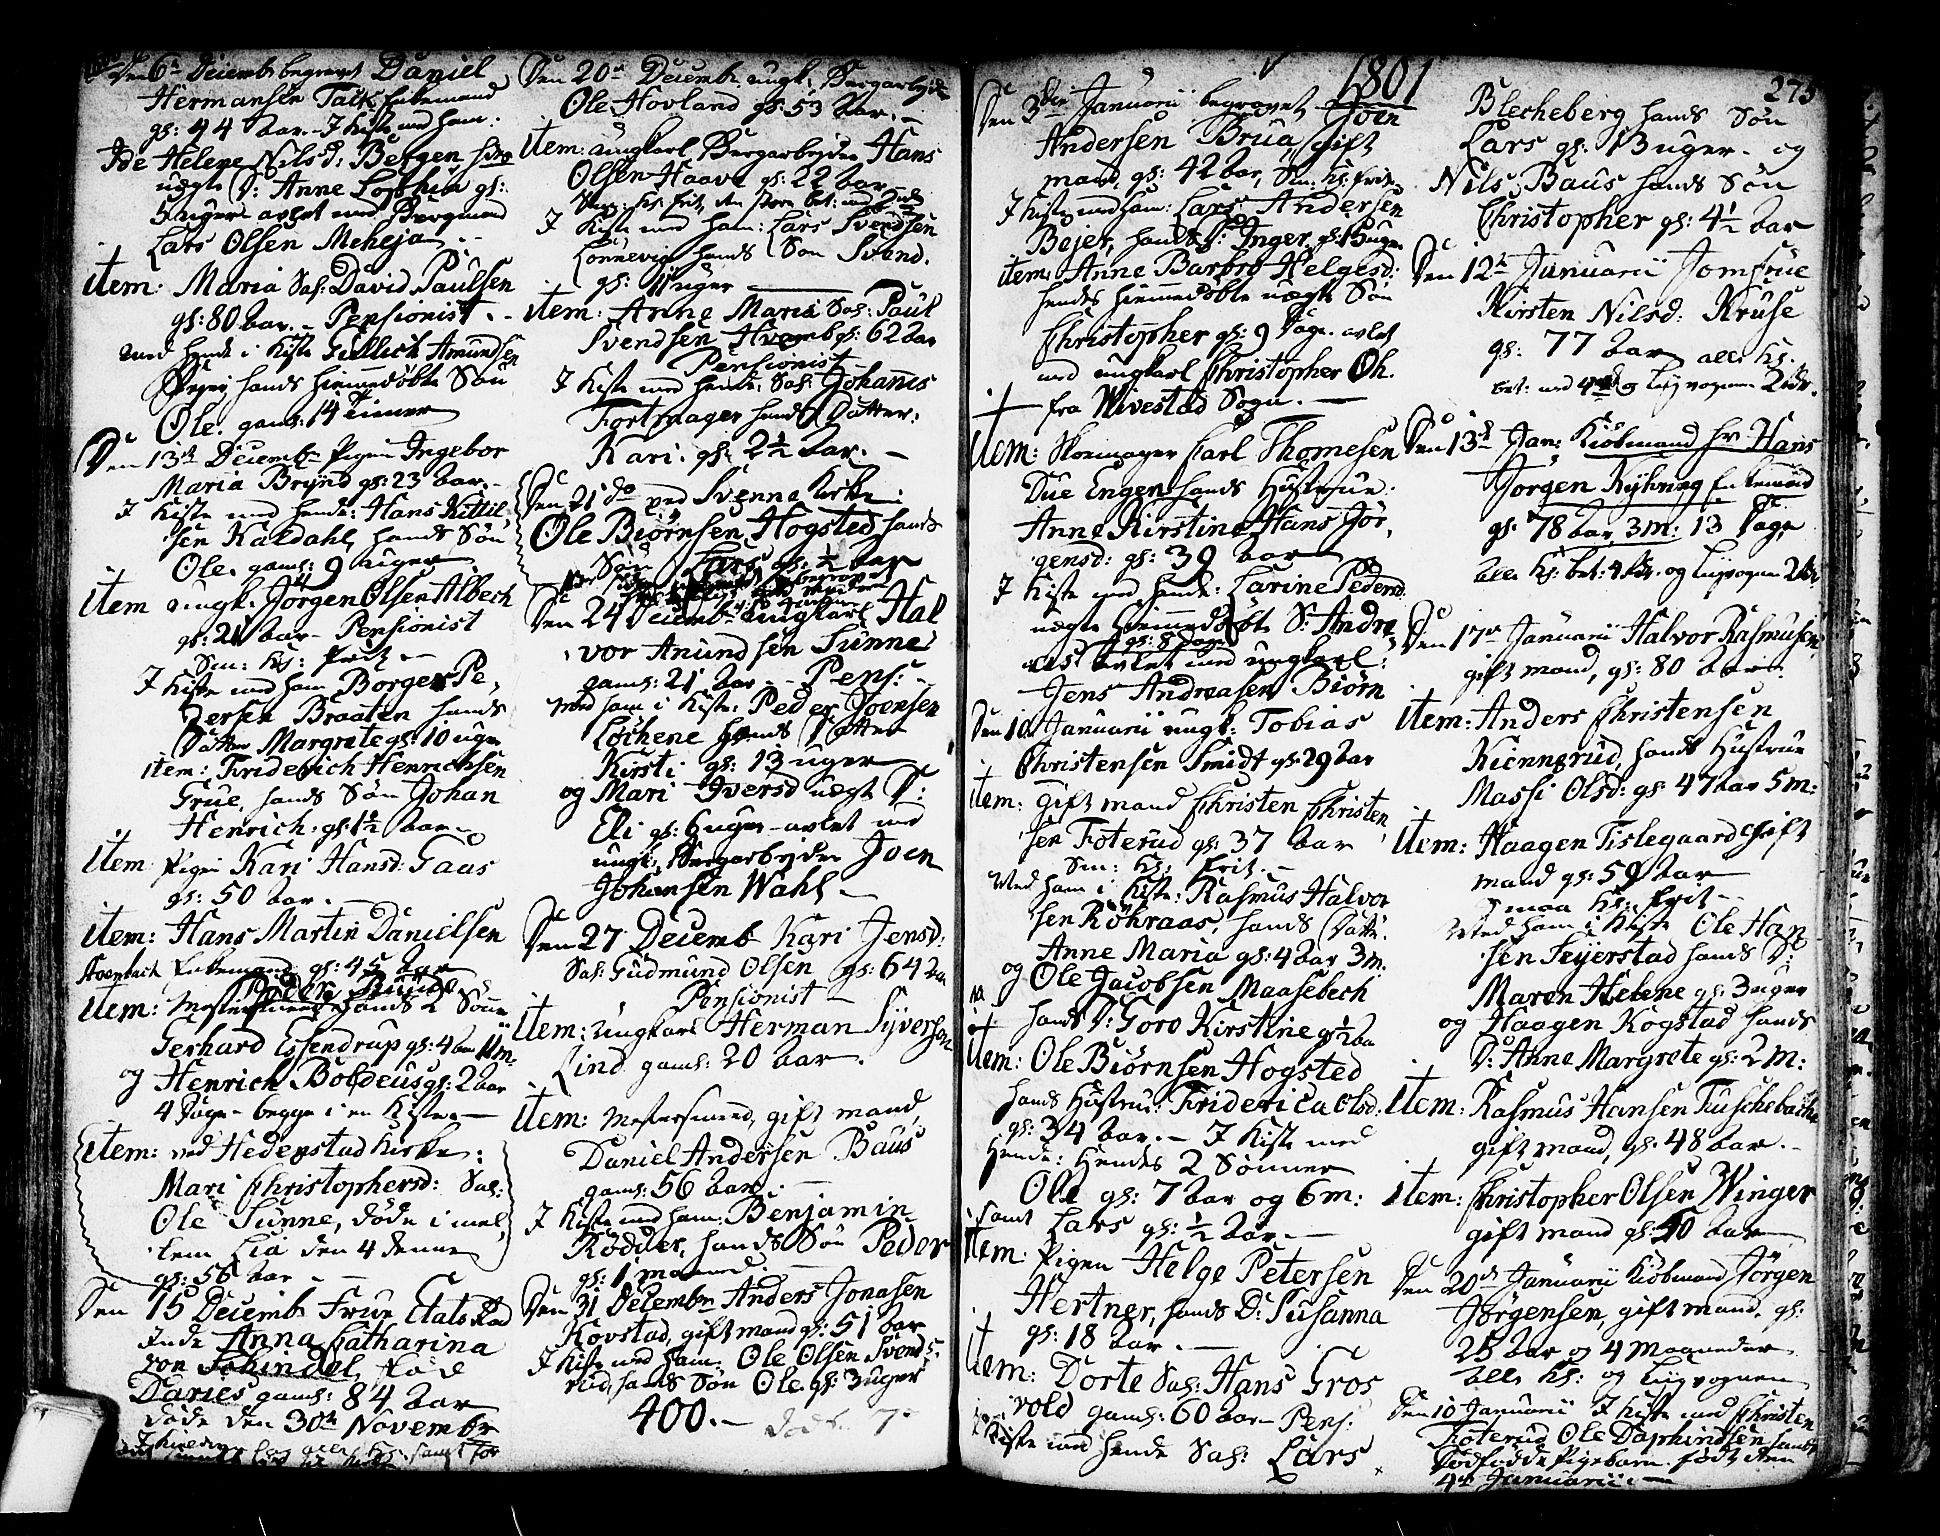 Den 6te Decembr begravet Daniel
Hermansen Falk Enkemand
gl: 44 aar. I Kiste med ham:
Ide Helene Nilsd: Bergen
uægte D: Anne Sophia gl:
5 uger avlet med Bergmand
Lars Olsen Meheja
item: Maria Sal: David Paulsen
gl: 80 aar. Pensionist.
med hende i Kiste Gullich Amundsen
hands hiemmedøbte Søn
Ole. gaml: 14 timer
Den 13de Decembr Pigen Ingebor
Maria Brynd gl: 23 aar.
I Kiste med hende: Hans Kittil
sen Kaldahl, hands Søn
Ole. gaml: 9 uger
item ungk. Jørgen Olsen Albech
gl: 21 aar. Pensionist
Sm: Kl: frit
I Kiste med ham Borger Pe
dersen Braaten hands
Datter Margrete gl: 10 uger
item: Friderich Henrichsen
Grue, hands Søn Johan
Henrich. gl: 1½ aar
item Pigen Kari Hansd: Gaas
gl: 50 aar.
item: Hans Martin Danielsen
Enkemand gl: 45 aar
item: Mestersmed hands 2 Sønner
Gerhard Essendrup gl: 4 aar 11 m.
og Henrich Boldeus gl: 2 aar
4 Dage begge i en Kiste
item: ved Hedenstad Kirke:
Mari Christophersd: Sal:
Ole Sunne, døde i mel
lem Lia den 4 denne
gl: 56 aar
Den 15 Decembr Frue Etats Raad
inde Anna Catharina
von fød
Danies gaml: 84 aar
døde den 30te Novembr
Den 20de Decembr ungk. Bergarbejder
Ole Hovland gl: 53 aar.
item: ungkarl Bergarbejder Hans
Olsen Haave gl: 22 aar
I Kiste med ham: Lars Svendsen
Lønnevig hands Søn Svend.
gl: 11 uger
item: Anne Maria Sal: Paul
Svendsen Hvamb gl: 62 aar
Pensionist
I Kiste med hende: Sal: Johanis
Fortmager hands Datter:
Kari. gl: 2½ aar.
Den 21 do ved Svenne Kirke:
Ole Biørnsen Hogsted hands
Søn Lars gl: ½ aar
Den 24 Decembr ungkarl Hal
vor Anundsen Sunne
gaml: 21 aar Pens:
med ham i Kiste: Peder Joensen
Løchene hands Datter
Kirsti gl: 13 uger
og Mari Iversd uægte D:
Eli gl: 6 uger avlet med
ungk. Bergarbejder Joen
Johansen Wahl
Den 27 Decemb Kari Jensd:
Sal: Gudmund Olsen gl: 64 aar
Pensionist
item: ungkarl Herman Syverson
Lind gaml: 20 aar.
item: Mestersmed, gift mand,
Daniel Andersen Baus
gaml: 56 aar
I Kiste med ham: Benjamin
Rødder, hands Søn Peder
gl: 1 maaned.
Den 31 Decembr Anders Jonasen
Kovstad, gift mand gl: 51 aar
I Kiste med ham: Ole Olsen Svends
rud, hands Søn Ole gl: 3 uger
400.
1801
Den 3die Januarii begravet Joen
Andersen Brua, gift
mand, gl: 42 aar, Sm: Kl: frit
I Kiste med ham: Lars Andersen
Bejer, hands D: Inger gl: uger
item: Anne Barbro Helgesd:
hendes hiemmedøbte uægte Søn
Christopher gl: 9 Dage. avlet
med ungkarl Christopher Oh.
fra Wivestad Sogn.
item: Skomager Carl Thomesen
Due Engen hands Hustrue
Anne Kirstine Hans Jør
gensd: gl: 39 aar
I Kiste med hende: Larine Pedersd
uægte Hiemmedøbte S: Andre
gl: 8 dage
as avlet med ungkarl:
Jens Andreasen Biørn
Den 10 Januarii ungk: Tobias
Christensen Smidt gl: 29 aar
item: gift mand Christen Christen
sen Foterud gl: 37 aar
Sm: Kl: frit.
Med ham i Kiste: Rasmus Halvor
sen Røhraas, hands Datt:
Anne Maria gl: 4 aar 3 m.
og Ole Jacobsen Maasebech
hands D: Goro Kirstine gl ½ aar
item: Ole Biørnsen Hogsted
hands Hustrue: Friderica Olsd:
gl: 34 aar. I Kiste med
hende: hendes 2 Sønner
Ole gl: 7 aar og 6 m:
samt Lars gl: ½ aar.
item Pigen Helge Petersen
Hertner, hands D: Susanna
gl: 18 aar.
item: Dorte Sal: Hans Gros
vold gaml: 60 aar Pens:
I Kiste med hende Sal: Lars
273
Blecheberg hands Søn
Lars gl: 13 uger. og
Nils Baus hands Søn
Christopher gl: 4½ aar
Den 12te Januarii Jomfrue
Kirsten Nilsd: Kruse
gl: 77 aar alle Kl.
bet: med 4 rdr og Liigvognen 2 rdr.
Den 13de Jan: Kiøbmand hr Hans
Jørgen Nyhuus Enkemand
gl: 78 aar 3 m: 13 Dage
alle Kl: bet: 4 rdr. og Liigvognen 2 rdr
Den 17de Januarii Halvor Rasmusen
gift mand, gl: 80 aar.
item: Anders Christensen
Kienngrud, hands Hustrue
Massi Olsd: gl: 47 aar 5 m:
item: Haagen Tislegaard gift
mand gl: 59 aar
smaa Kl: frit
Med ham i Kiste Ole Han
sen Tejerstad hands D:
Maren Helene gl: 3 uger
og Haagen Kogstad hands
D: Anne Margrete gl: 2 m:
item: Rasmus Hansen Tuschebache
gift mand, gl: 48 aar.
item: Christopher Olsen Winger
gift mand gl: 50 aar
Den 20de Januarii Kiøbmand Jørgen
Jørgensen, gift mand. gl:
25 aar og 4 maaneder
alle Kl: og Liigvognen
Den 10 Januarii I Kiste med Christen
Foterud Ole Daphindsen hands
dødfødde Pigebarn født den
4de Januarii